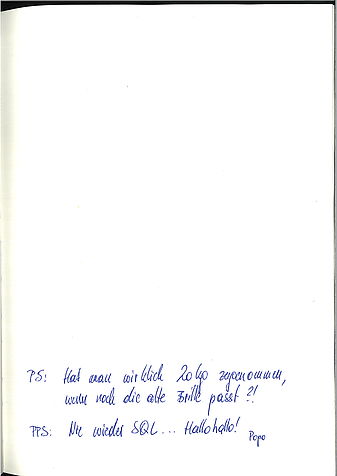 PS: Hat man wirklich 20kg zugenommen,
wenn noch die alte Brille passt?!
PPS: Nie wieder SQL... Hallohallo!
Popo